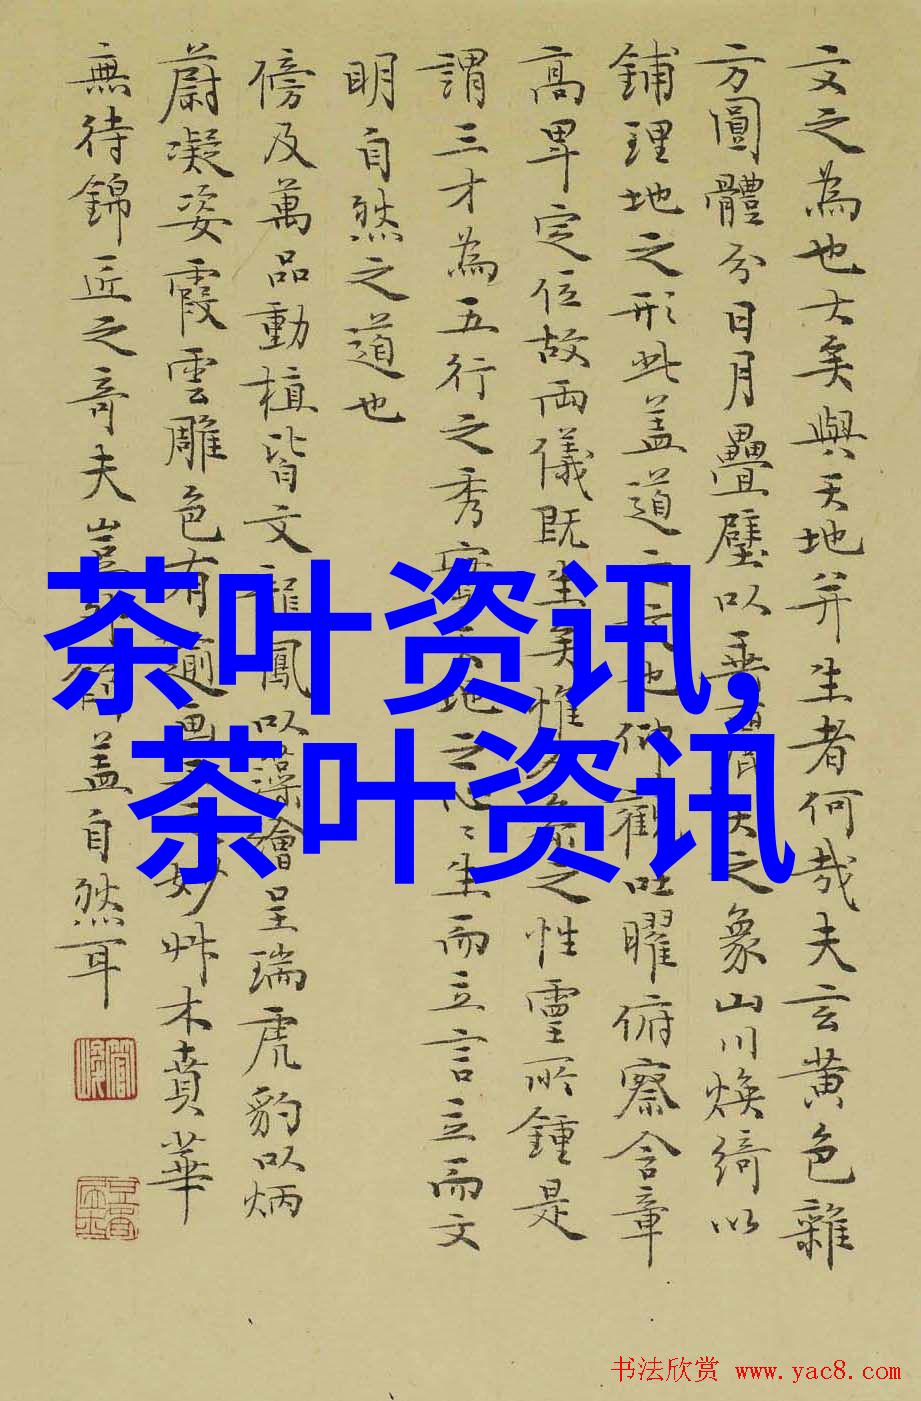 文之為也大矣與天地并生者何哉夫玄黃色雜
方圓體分日月疊璧以垂天之象山川煥綺以
鋪理地之形此盖道之文也仰觀吐曜俯察含章
高卑定位故兩儀既生矣惟之性靈所鍾是
謂三才為五行之秀實天地之心〻生而立言立而文
明自然之道也
傍及萬品動植皆文龍鳳以藻繪呈瑞虎豹以炳
蔚凝姿霞雲雕色有逾畫妙艸木賁華
無待錦匠之奇夫豈盖自然耳
茶叶资讯,
茶叶资讯
书法欣赏 www.yac8.com